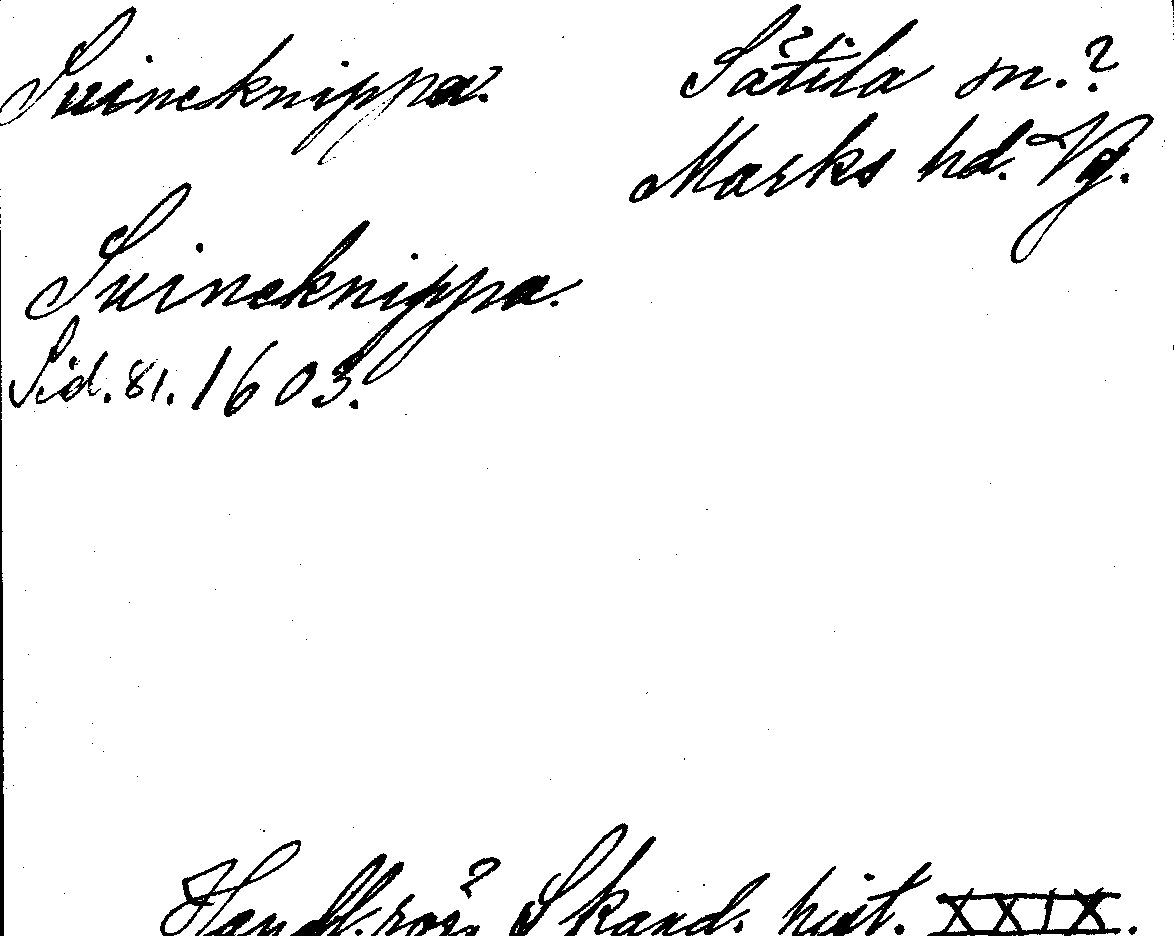 Svineknippa. Sätila sn.?
Marks hd. Vg.
Svineknippa.
Sid. 81. 1603.
Handl. rör. Skand. hist. XXIX.